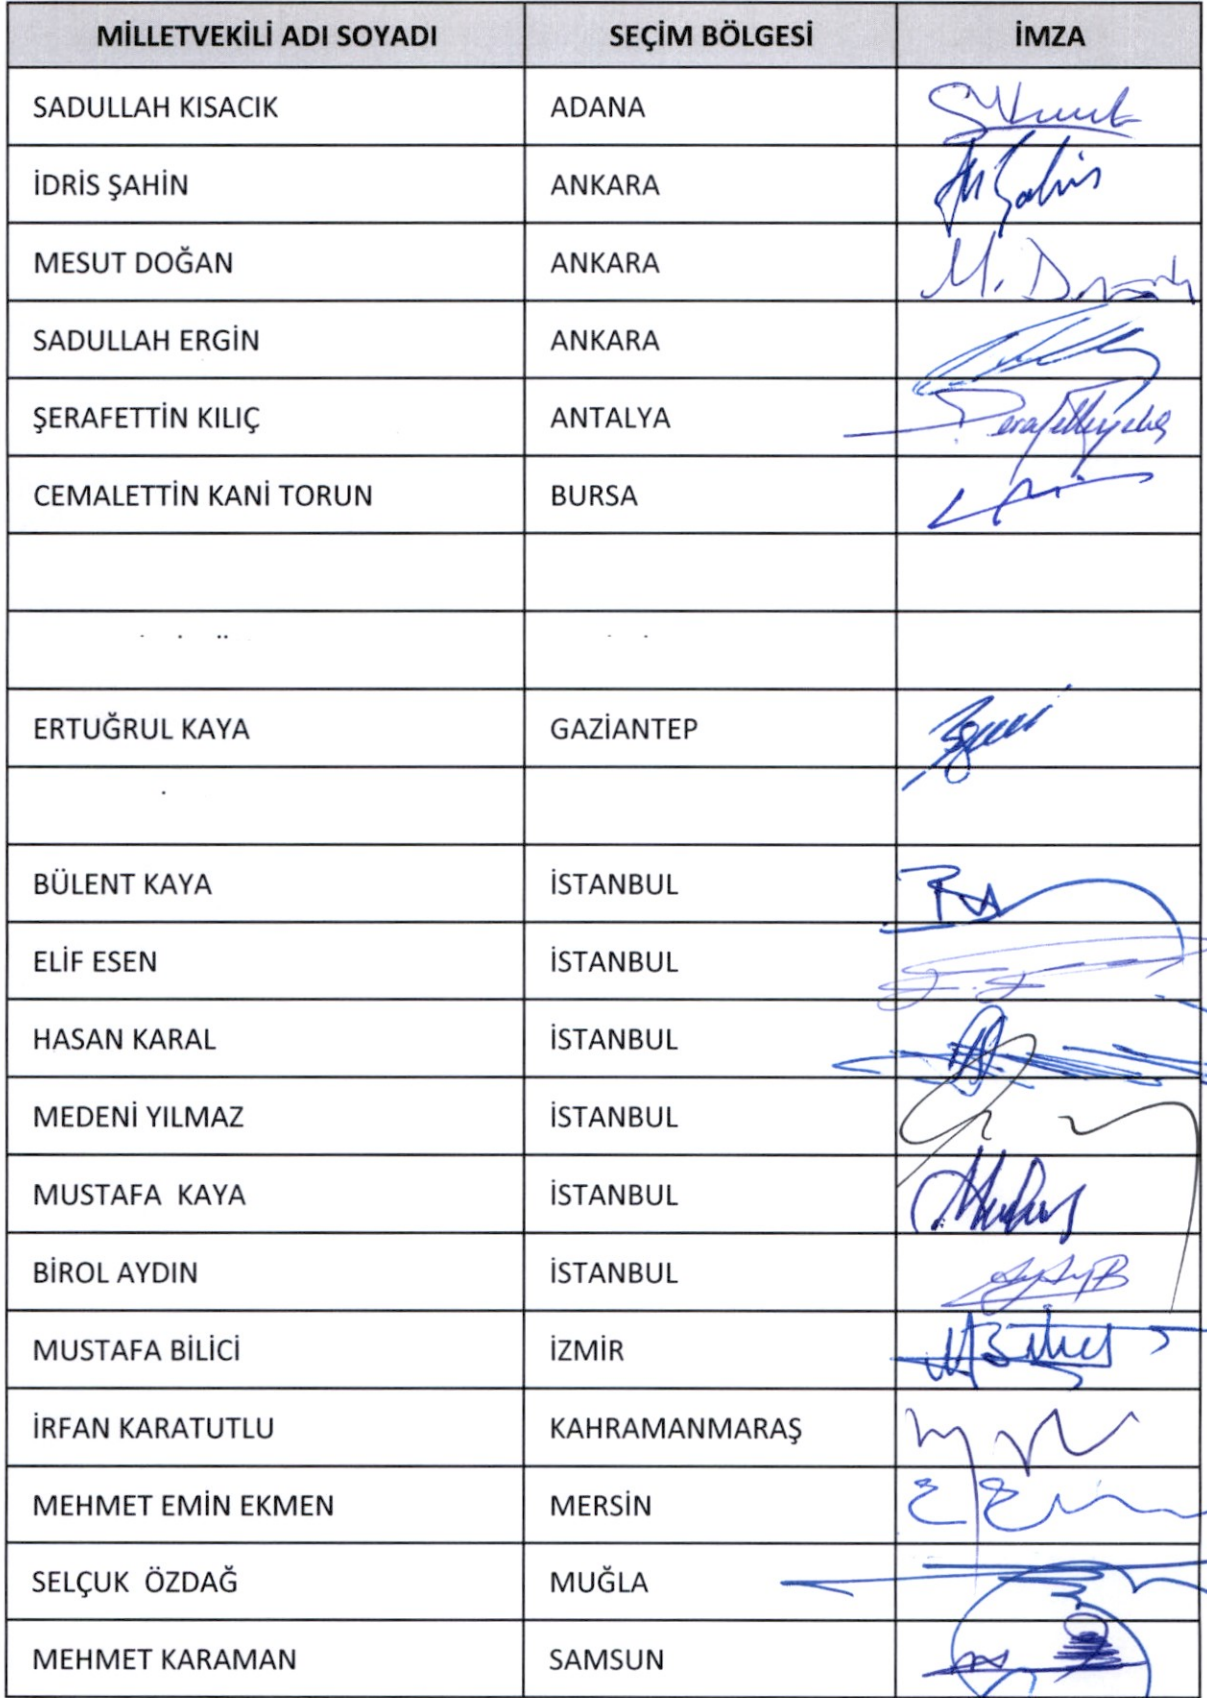 MİLLETVEKİLİ ADI SOYADI SEÇİM BÖLGESİ İMZA
SADULLAH KISACIK ADANA
İDRİS ŞAHİN ANKARA
MESUT DOĞAN ANKARA M.
SADULLAH ERGİN ANKARA
ŞERAFETTİN KILIÇ ANTALYA
CEMALETTİN KANİ TORUN BURSA
ERTUĞRUL KAYA GAZİANTEP
BÜLENT KAYA İSTANBUL
ELİF ESEN İSTANBUL
HASAN KARAL İSTANBUL
MEDENİ YILMAZ İSTANBUL
MUSTAFA KAYA İSTANBUL
BİROL AYDIN İSTANBUL
MUSTAFA BİLİCİ İZMİR
İRFAN KARATUTLU KAHRAMANMARAŞ
MEHMET EMİN EKMEN MERSİN
SELÇUK ÖZDAĞ MUĞLA
MEHMET KARAMAN SAMSUN